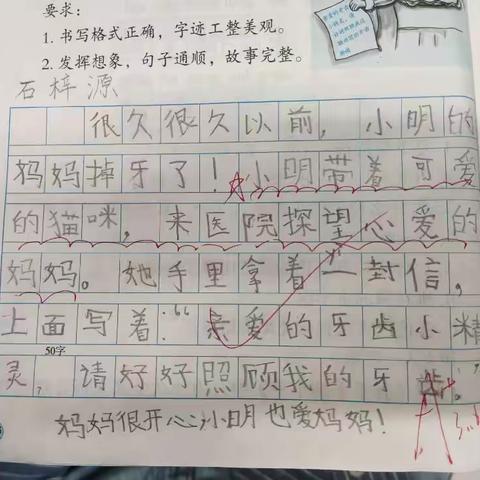 要求：
1. 书写格式正确，字迹工整美观。
2. 发挥想象，句子通顺，故事完整。
石梓源
很久很久以前，小明的
妈妈掉牙了！小明带着可爱
的猫咪，来医院探望心爱的
妈妈。她手里拿着一封信，
上面写着：“亲爱的牙齿小精
50字
灵，请好好照顾我的牙齿。”
妈妈很开心，小明也爱妈妈！